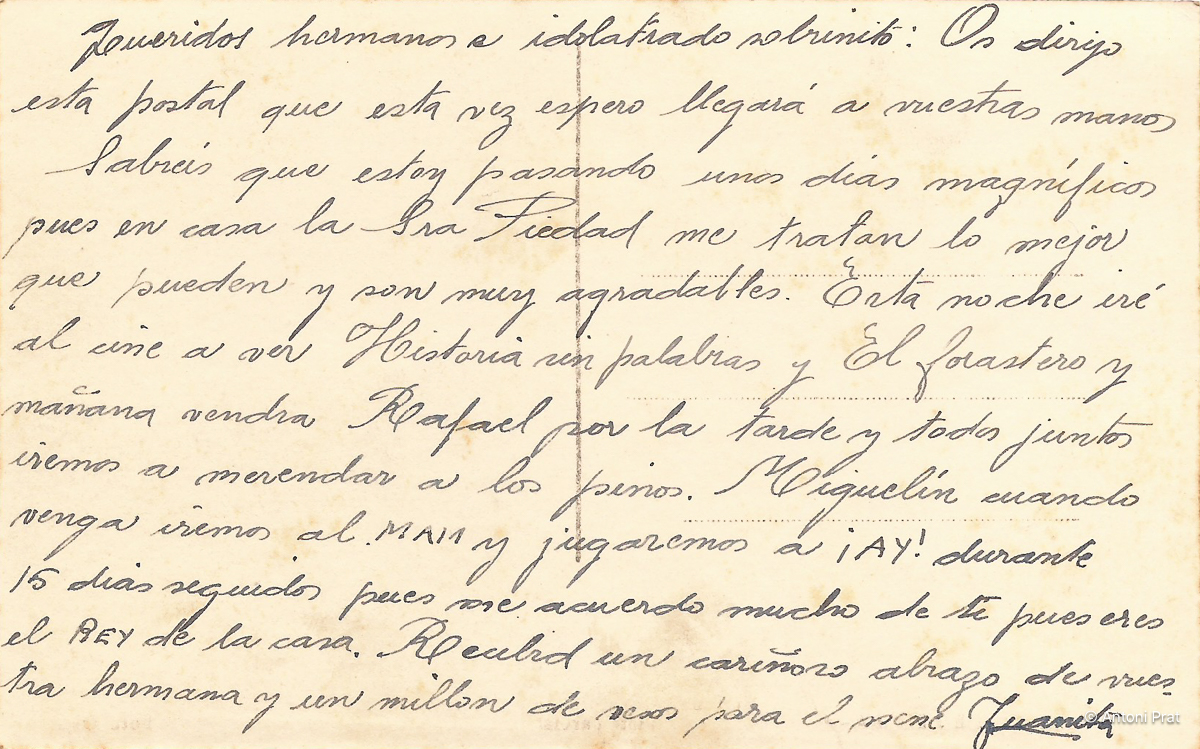 Queridos hermanos e idolatrado sobrinito: Os dirijo
esta postal que esta vez espero llegará a vuestras manos
Sabreis que estoy pasando unos dias magníficos
pues en casa la Sra Piedad me tratan lo mejor
que pueden y son muy agradables. Esta noche iré
al cine a ver Historia sin palabras y El forastero y
mañana vendra Rafael por la tarde y todos juntos
iremos a merendar a los pinos. Miguelín cuando
venga iremos al MAM y jugaremos a ¡AY! durante
15 dias seguidos pues me acuerdo mucho de ti pues eres
el REY de la casa. Recibid un cariñoso abrazo de vues-
tra hermana y un millon de besos para el nene Juanita
© Antoni Prat